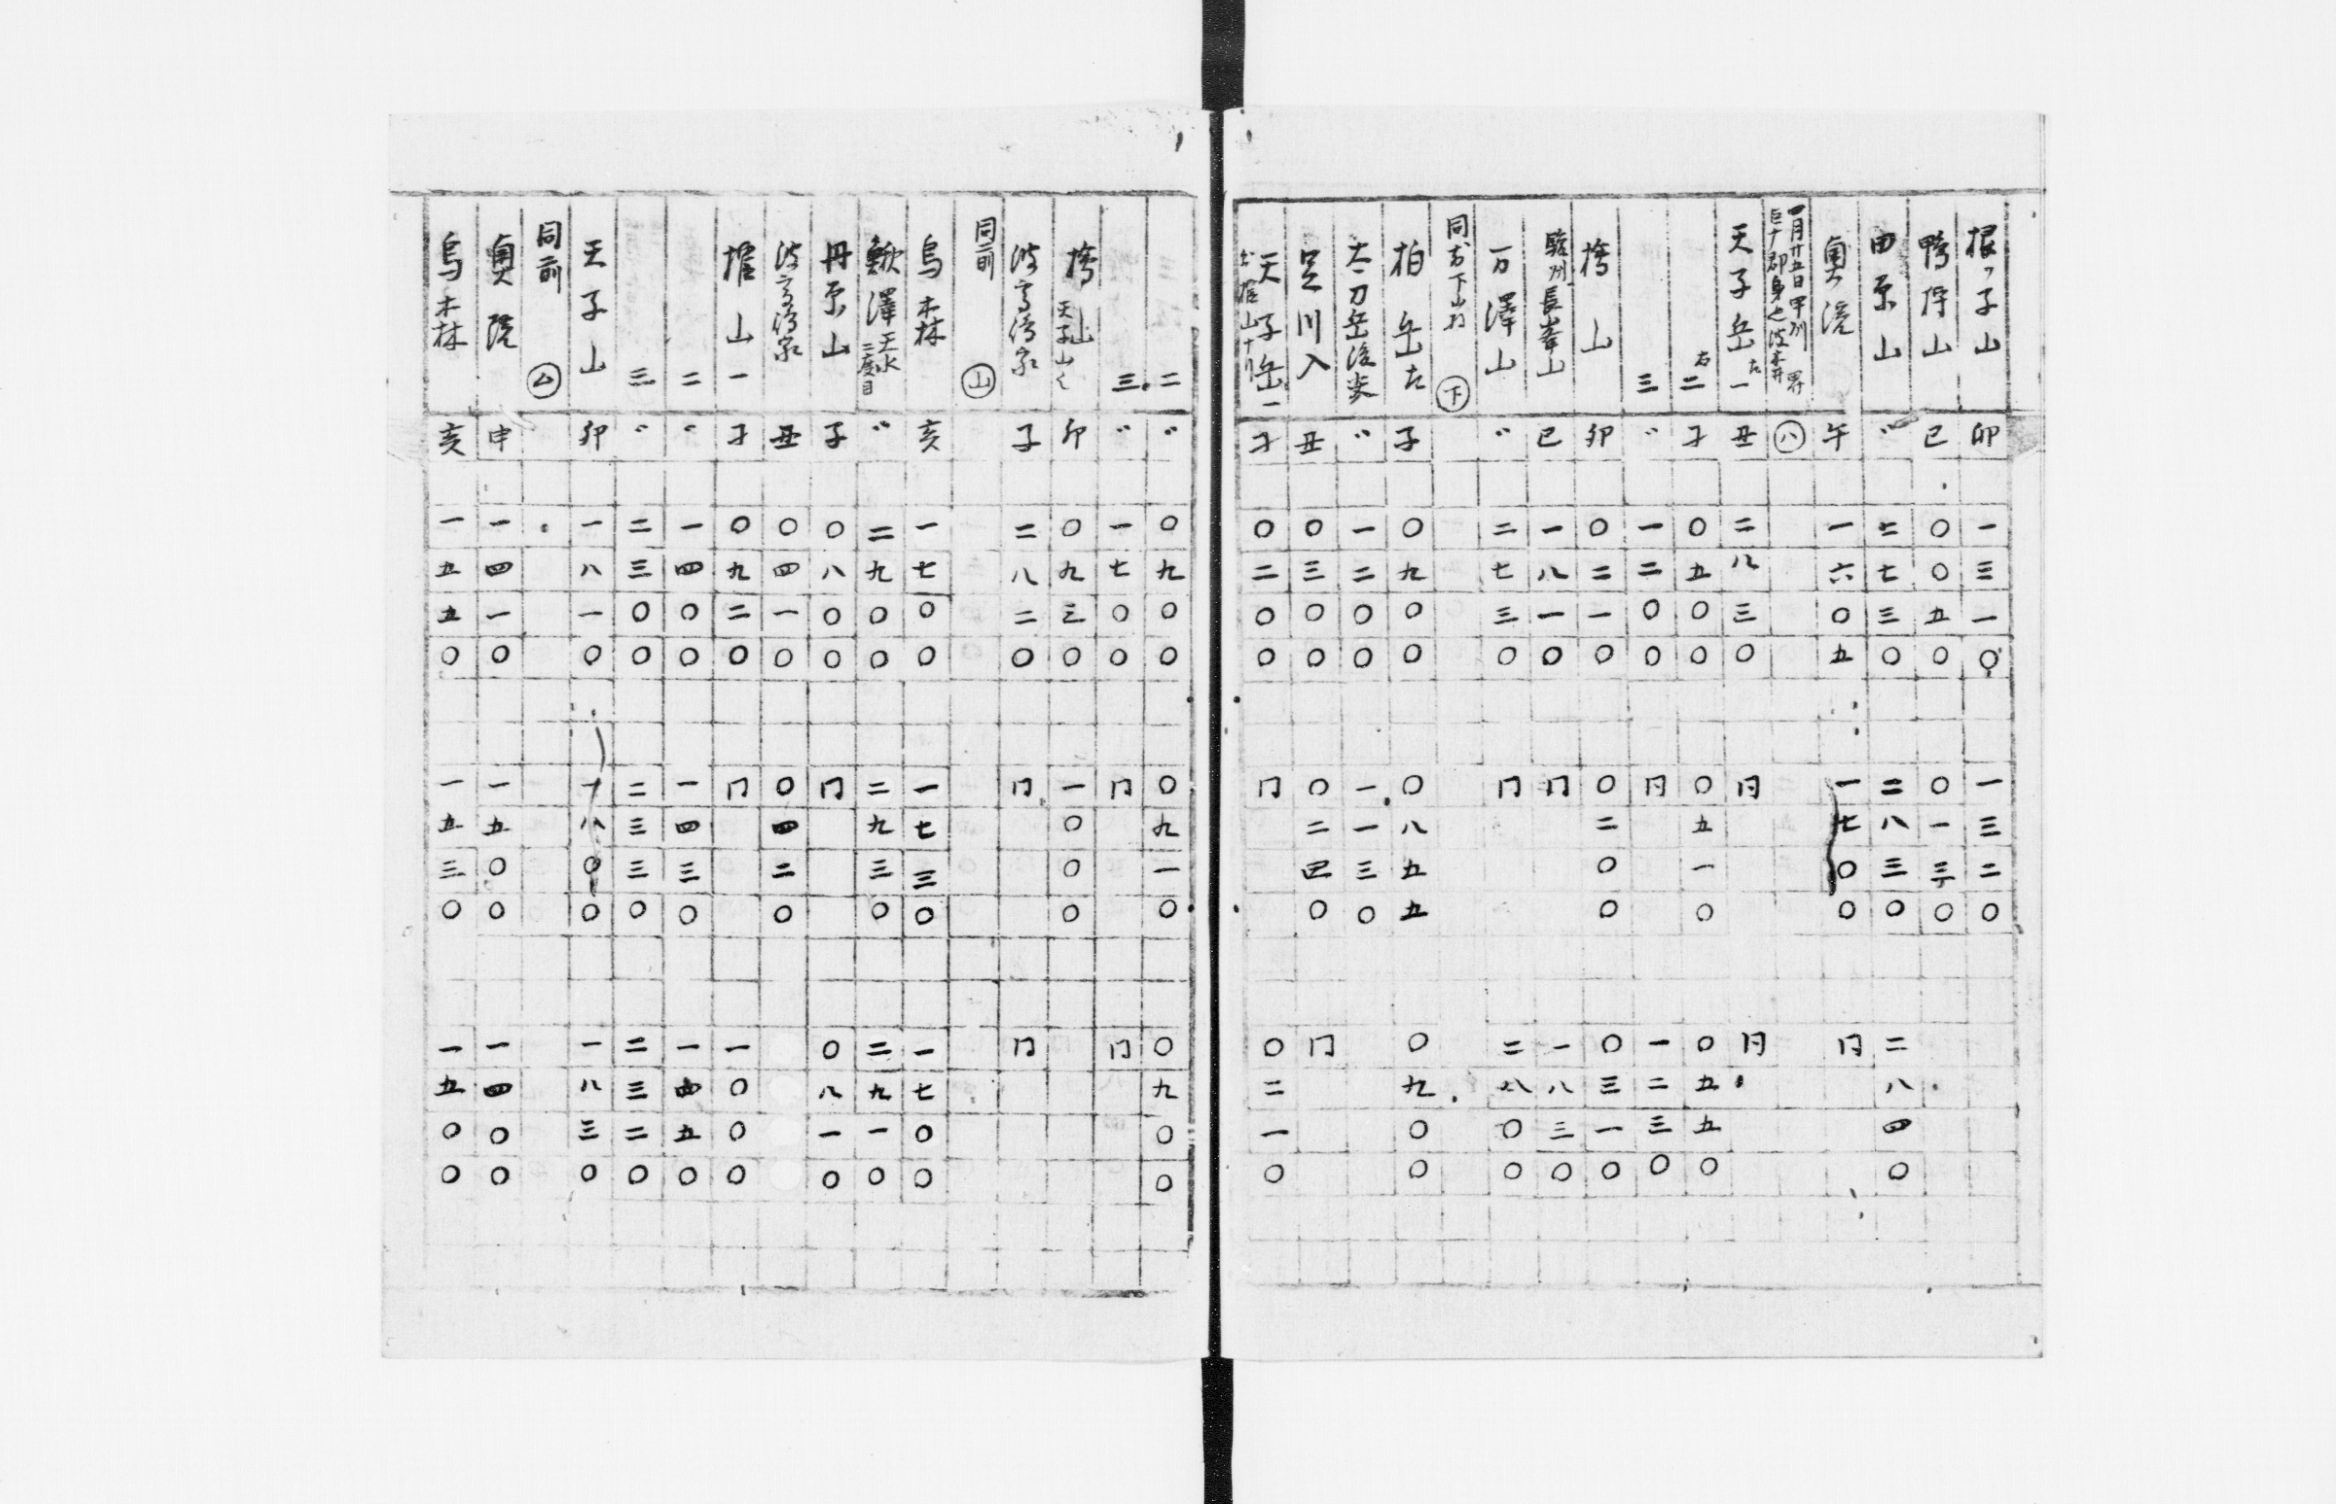 根ノ子山 卯 一三一〇 一三二〇
鴨狩山 巳 〇〇五〇 〇一三〇
田原山 〃 二七三〇 二八三〇 二八四〇
奥ノ院 午 一六〇五 一七〇〇 同
一月廿五日甲州 巨十郡身 八
天子岳 左一 丑 二八三〇 同 同
右二 才 〇五〇〇 〇五一〇 〇五五〇
三 〃 一二〇〇 同 一二三〇
山 卯 〇二一〇 〇二〇〇 〇三一〇
駿州長峯山 巳 一八一〇 同 一八三〇
万澤山 〃 二七三〇 同 二八〇〇
同 下山 下
柏岳左 子 〇九〇〇 〇八五五 〇九〇〇
刀岳 〃 一二〇〇 一一三〇
川入 丑 〇三〇〇 〇二四〇 同
天子岳一 才 〇二〇〇 同 〇二一〇
二 〃 〇九〇〇 〇九一〇 〇九〇〇
三 〃 一七〇〇 同 同
山 天子山 卯 〇九三〇 一〇〇〇
波 子 二八二〇 同 同
同前 山
烏森 亥 一七〇〇 一七三〇 一七〇〇
鰍澤 二度目 〃 二九〇〇 二九三〇 二九一〇
丹原山 子 〇八〇〇 同 〇八一〇
波 丑 〇四一〇 〇四二〇
山一 才 〇九二〇 同 一〇〇〇
二 〃 一四〇〇 一四三〇 一四五〇
三 〃 二三〇〇 二三三〇 二三二〇
天子山 卯 一八一〇 一八〇〇 一八三〇
同前
奥院 申 一四一〇 一五〇〇 一四〇〇
烏森 亥 一五五〇 一五三〇 一五〇〇